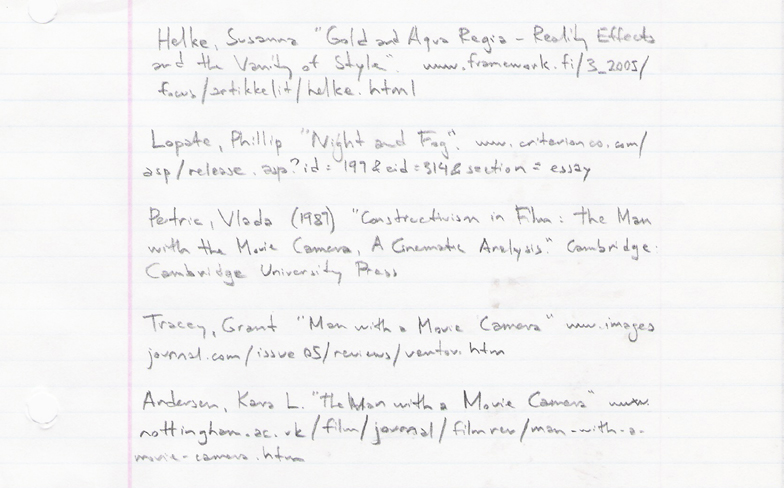 Helke, Susanna "Gold and Aqua Regia - Reality Effects
and the Vanity of Style". www.framework.fi/3_2005/
focus/artikkelit/helke.html
Lopate, Phillip "Night and Fog". www.criterionco.com/
asp/release.asp?id=197&eid=314&section=essay
Petric, Vlada (1987) "Constructivism in Film: the Man
with the Movie Camera, A Cinematic Analysis." Cambridge.
Cambridge University Press
Tracey, Grant "Man with a Movie Camera" www.images
journal.com/issue05/reviews/vertov.htm
Andersen, Kara L. "the Man with a Movie Camera" www.
nottingham.ac.uk/film/journal/filmrev/man-with-a-
movie-camera.htm